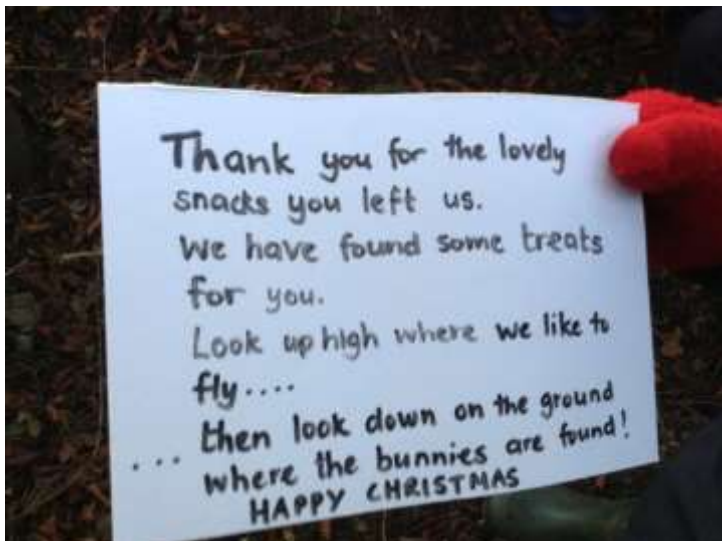 Thank you for the lovely
snacks you left us.
We have found some treats
for you.
Look up high where we like to
fly....
... then look down on the ground
where the bunnies are found!
HAPPY CHRISTMAS